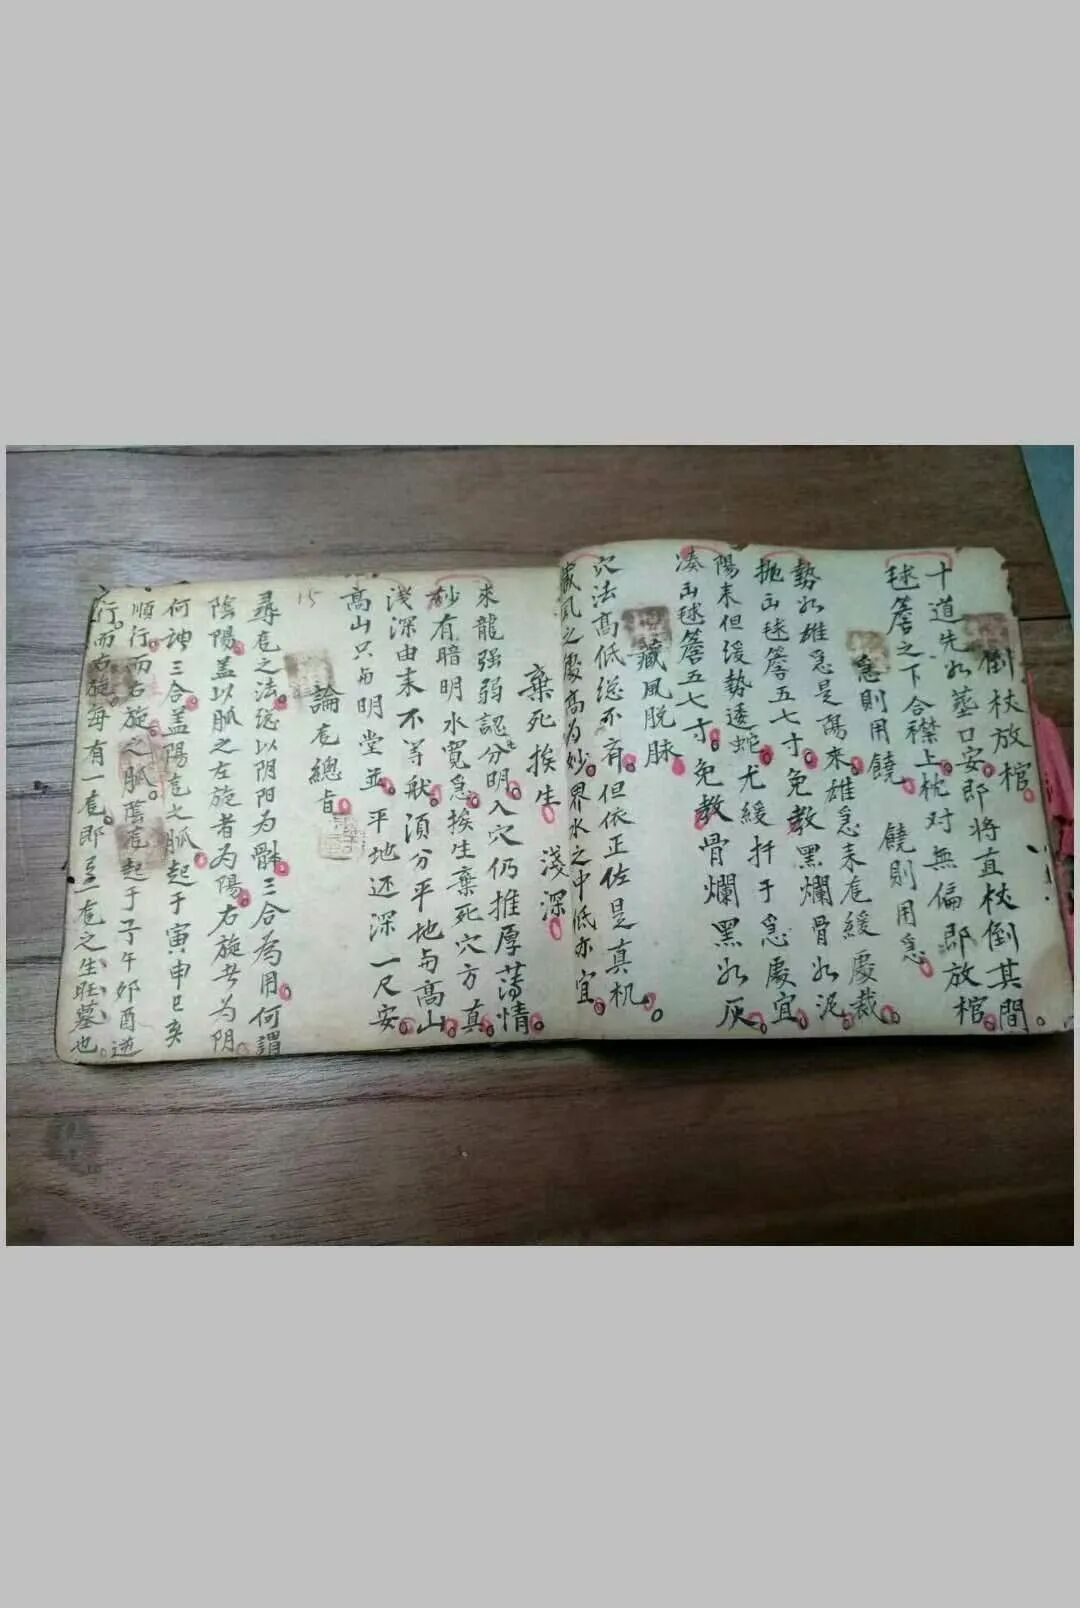 倒杖放棺
十道先從墓口安即將直杖倒其間
毬簷之下合襟上枕对無偏即放棺
急則用饒　饒則用急
勢如雄急是陽來雄急来龙緩處裁
抛出毬簷五七寸免教黑爛骨如泥
陽来但緩勢逶蛇尤緩扦于急處宜
凑出毬簷五七寸免教骨爛黑如灰
藏風脱脉
穴法高低総不斉但依正佐是真机
藏風之處高为妙界水之中低亦宜
棄死挨生　淺深
求龍强弱認分明入穴仍推厚薄情
砂有暗明水寛急挨生棄死穴方真
浅深由来不等般須分平地与高山
高山只与明堂並平地还深一尺安
15
論龙總旨
尋龙之法総以阴阳为體三合為用何謂
陰陽盖以脈之左旋者为陽右旋者为阴
何謂三合盖陽龙之脈起于寅申巳亥
順行而右旋之脈陰龙起于子午卯酉逆
行而右旋每有一龙即有一龙之生旺墓也